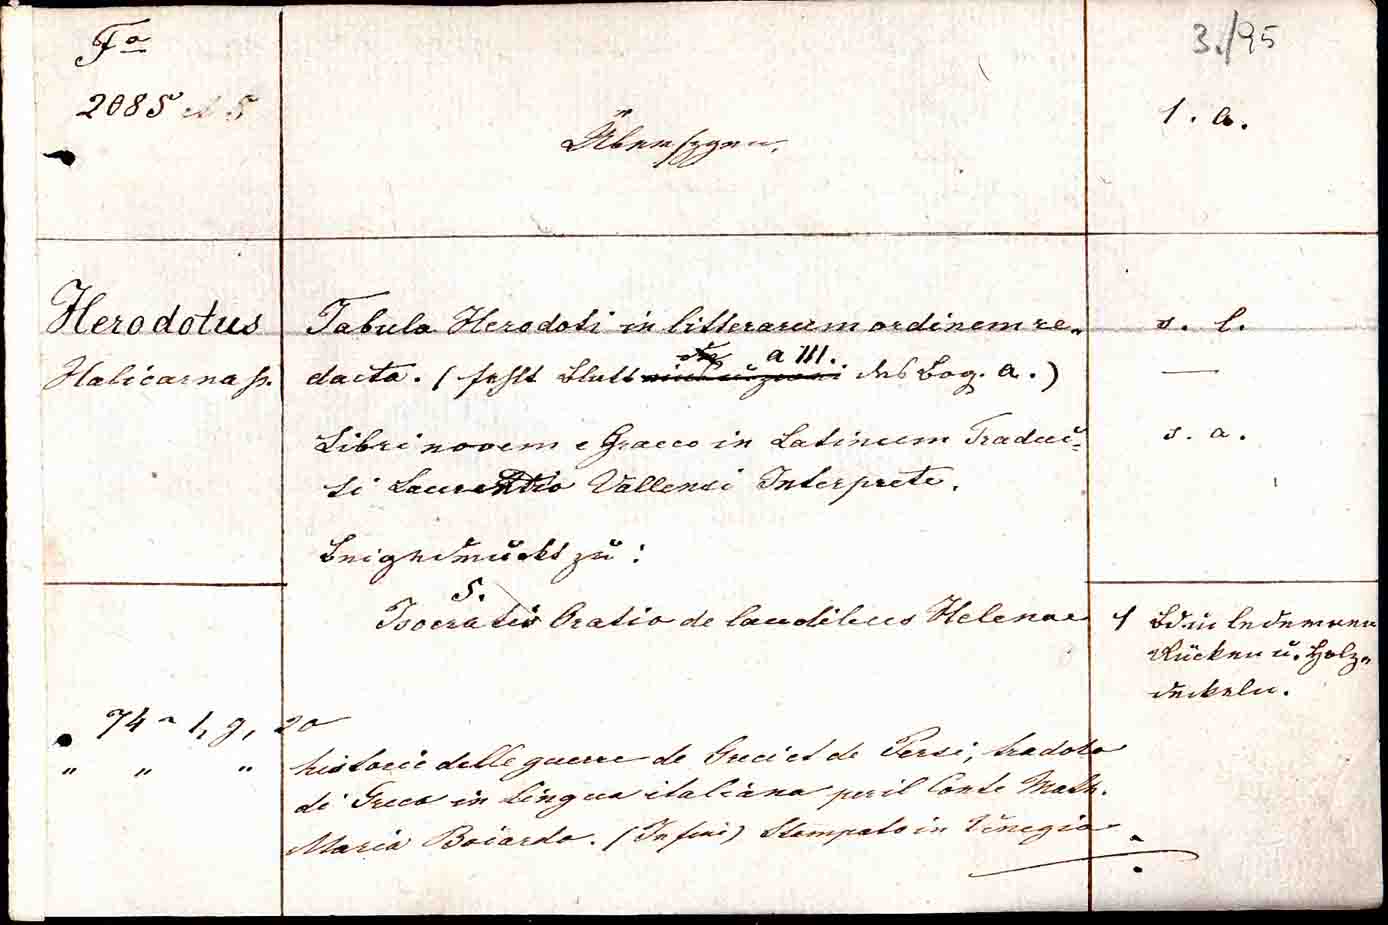 Fo
3./95
2085
1. a.
Übersezgen.
Herodotus
Tabula Herodoti in litterarum ordinem re-
s. l.
a III.
Halicarnass.
dacta. (fehlt Blatt des Bog. a.)
—
Libri novem e Graeco in Latinum Traduc-
s. a.
ti Laurentio Vallensi Interprete.
Beigedruckt zu:
S.
Isocratis Oratio de laudibus Helenae
1 Bd in ledernen
Rücken u. Holz-
deckeln.
74 1, g, 20
" " "
historie delle guerre de Greci et de Persi, tradoto
di Greco in Lingua italiana per il Conte Math.
Maria Boiardo. (In fine) Stampato in Vinegia